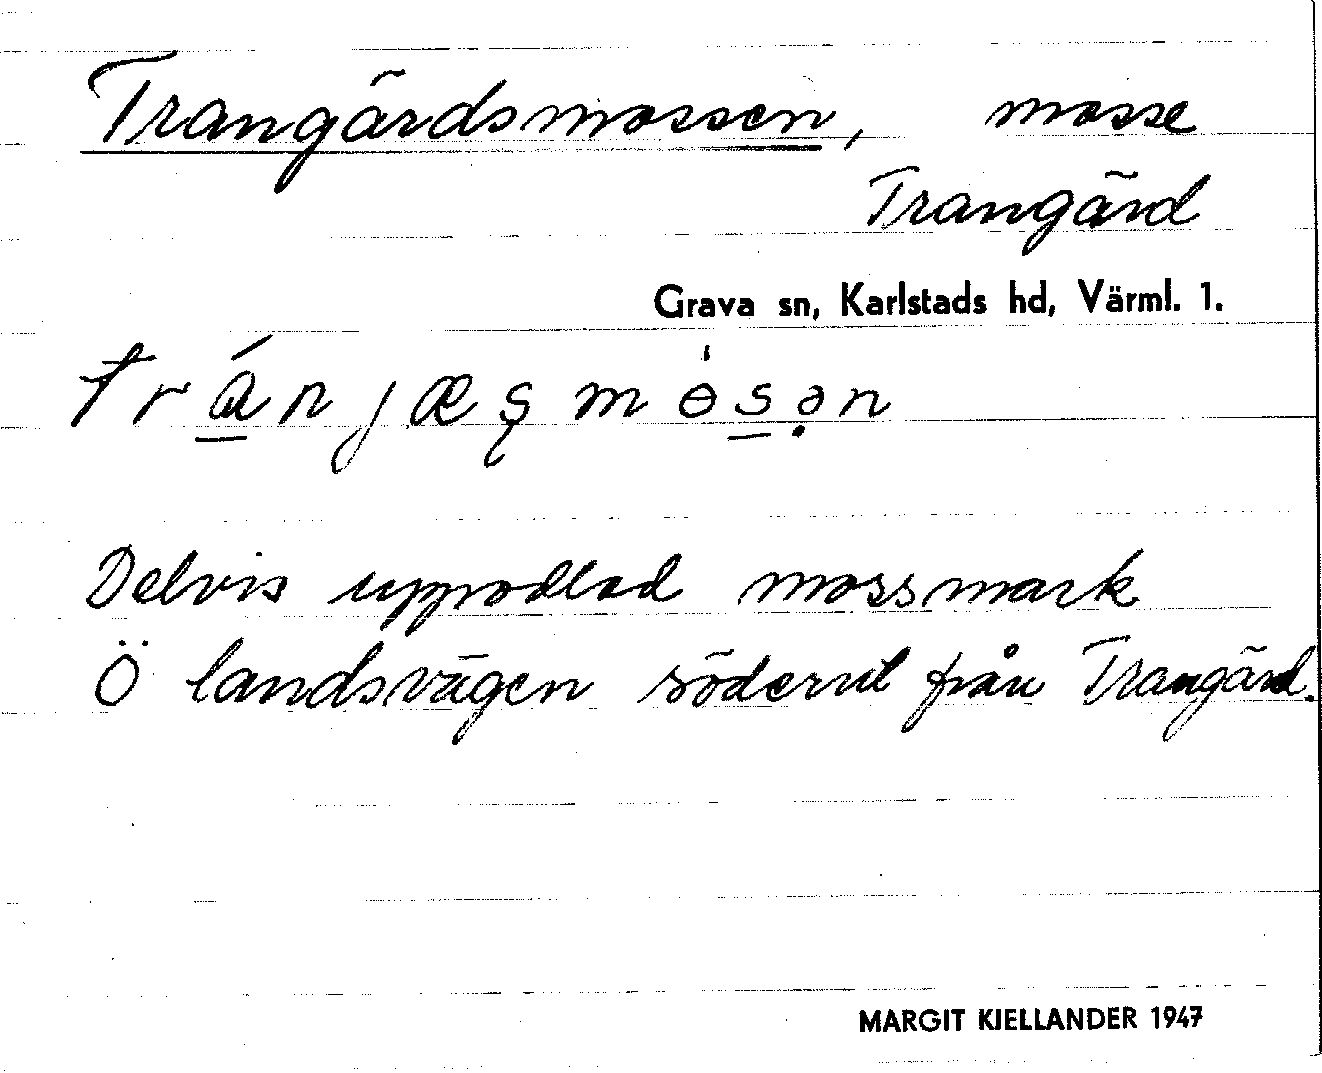 Trangärdsmossen, mosse
Trangärd
Grava sn, Karlstads hd, Värml. 1.
tránjæʂmòsən
Delvis uppodlad mossmark
Ö landsvägen söderut från Trangärd.
MARGIT KJELLANDER 1947